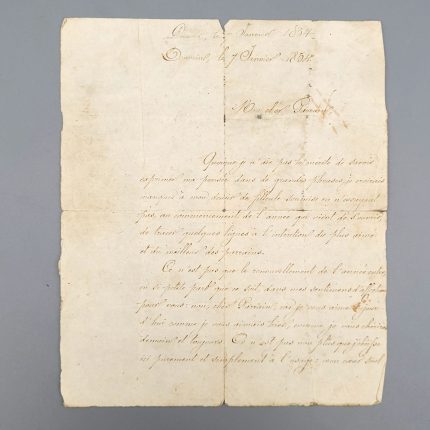 le 7 Janvier 1834.
le 7 Janvier 1834.
Mon cher Parrain
Quoique je n'aie pas le mérite de savoir
exprimer ma pensée dans de grandes phrases, je croirais
manquer à mon devoir de filleule soumise en n'essayant
pas, au commencement de l'année qui vient de s'ouvrir,
de tracer quelques lignes à l'intention du plus aimé
et du meilleur des parrains.
Ce n'est pas que le renouvellement de l'année entre
en si petite part que ce soit dans mes sentiments d'affection
pour vous: non, cher Parrain, car je vous aime
hui comme je vous aimais hier, comme je vous chérirai
demain et toujours. Ce n'est pas non plus que j'obéisse
ici purement et simplement à l'usage; mon cœur seul